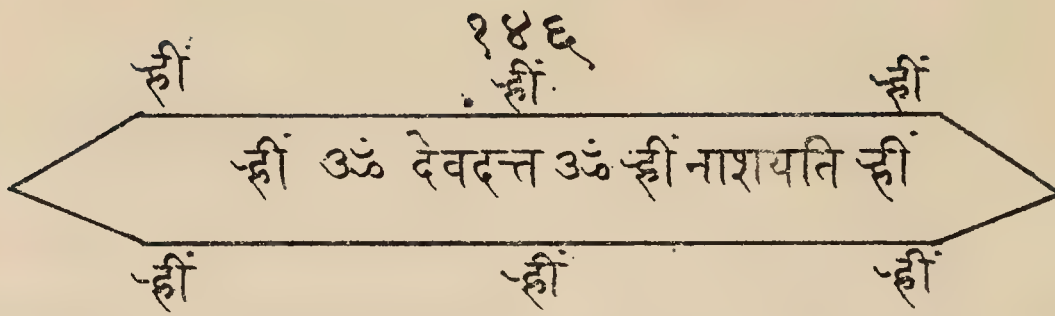 १४६
ह्रीं ह्रीं ह्रीं
ह्रीं ॐ देवदत्त ॐ ह्रीं नाशयति ह्रीं
ह्रीं ह्रीं ह्रीं